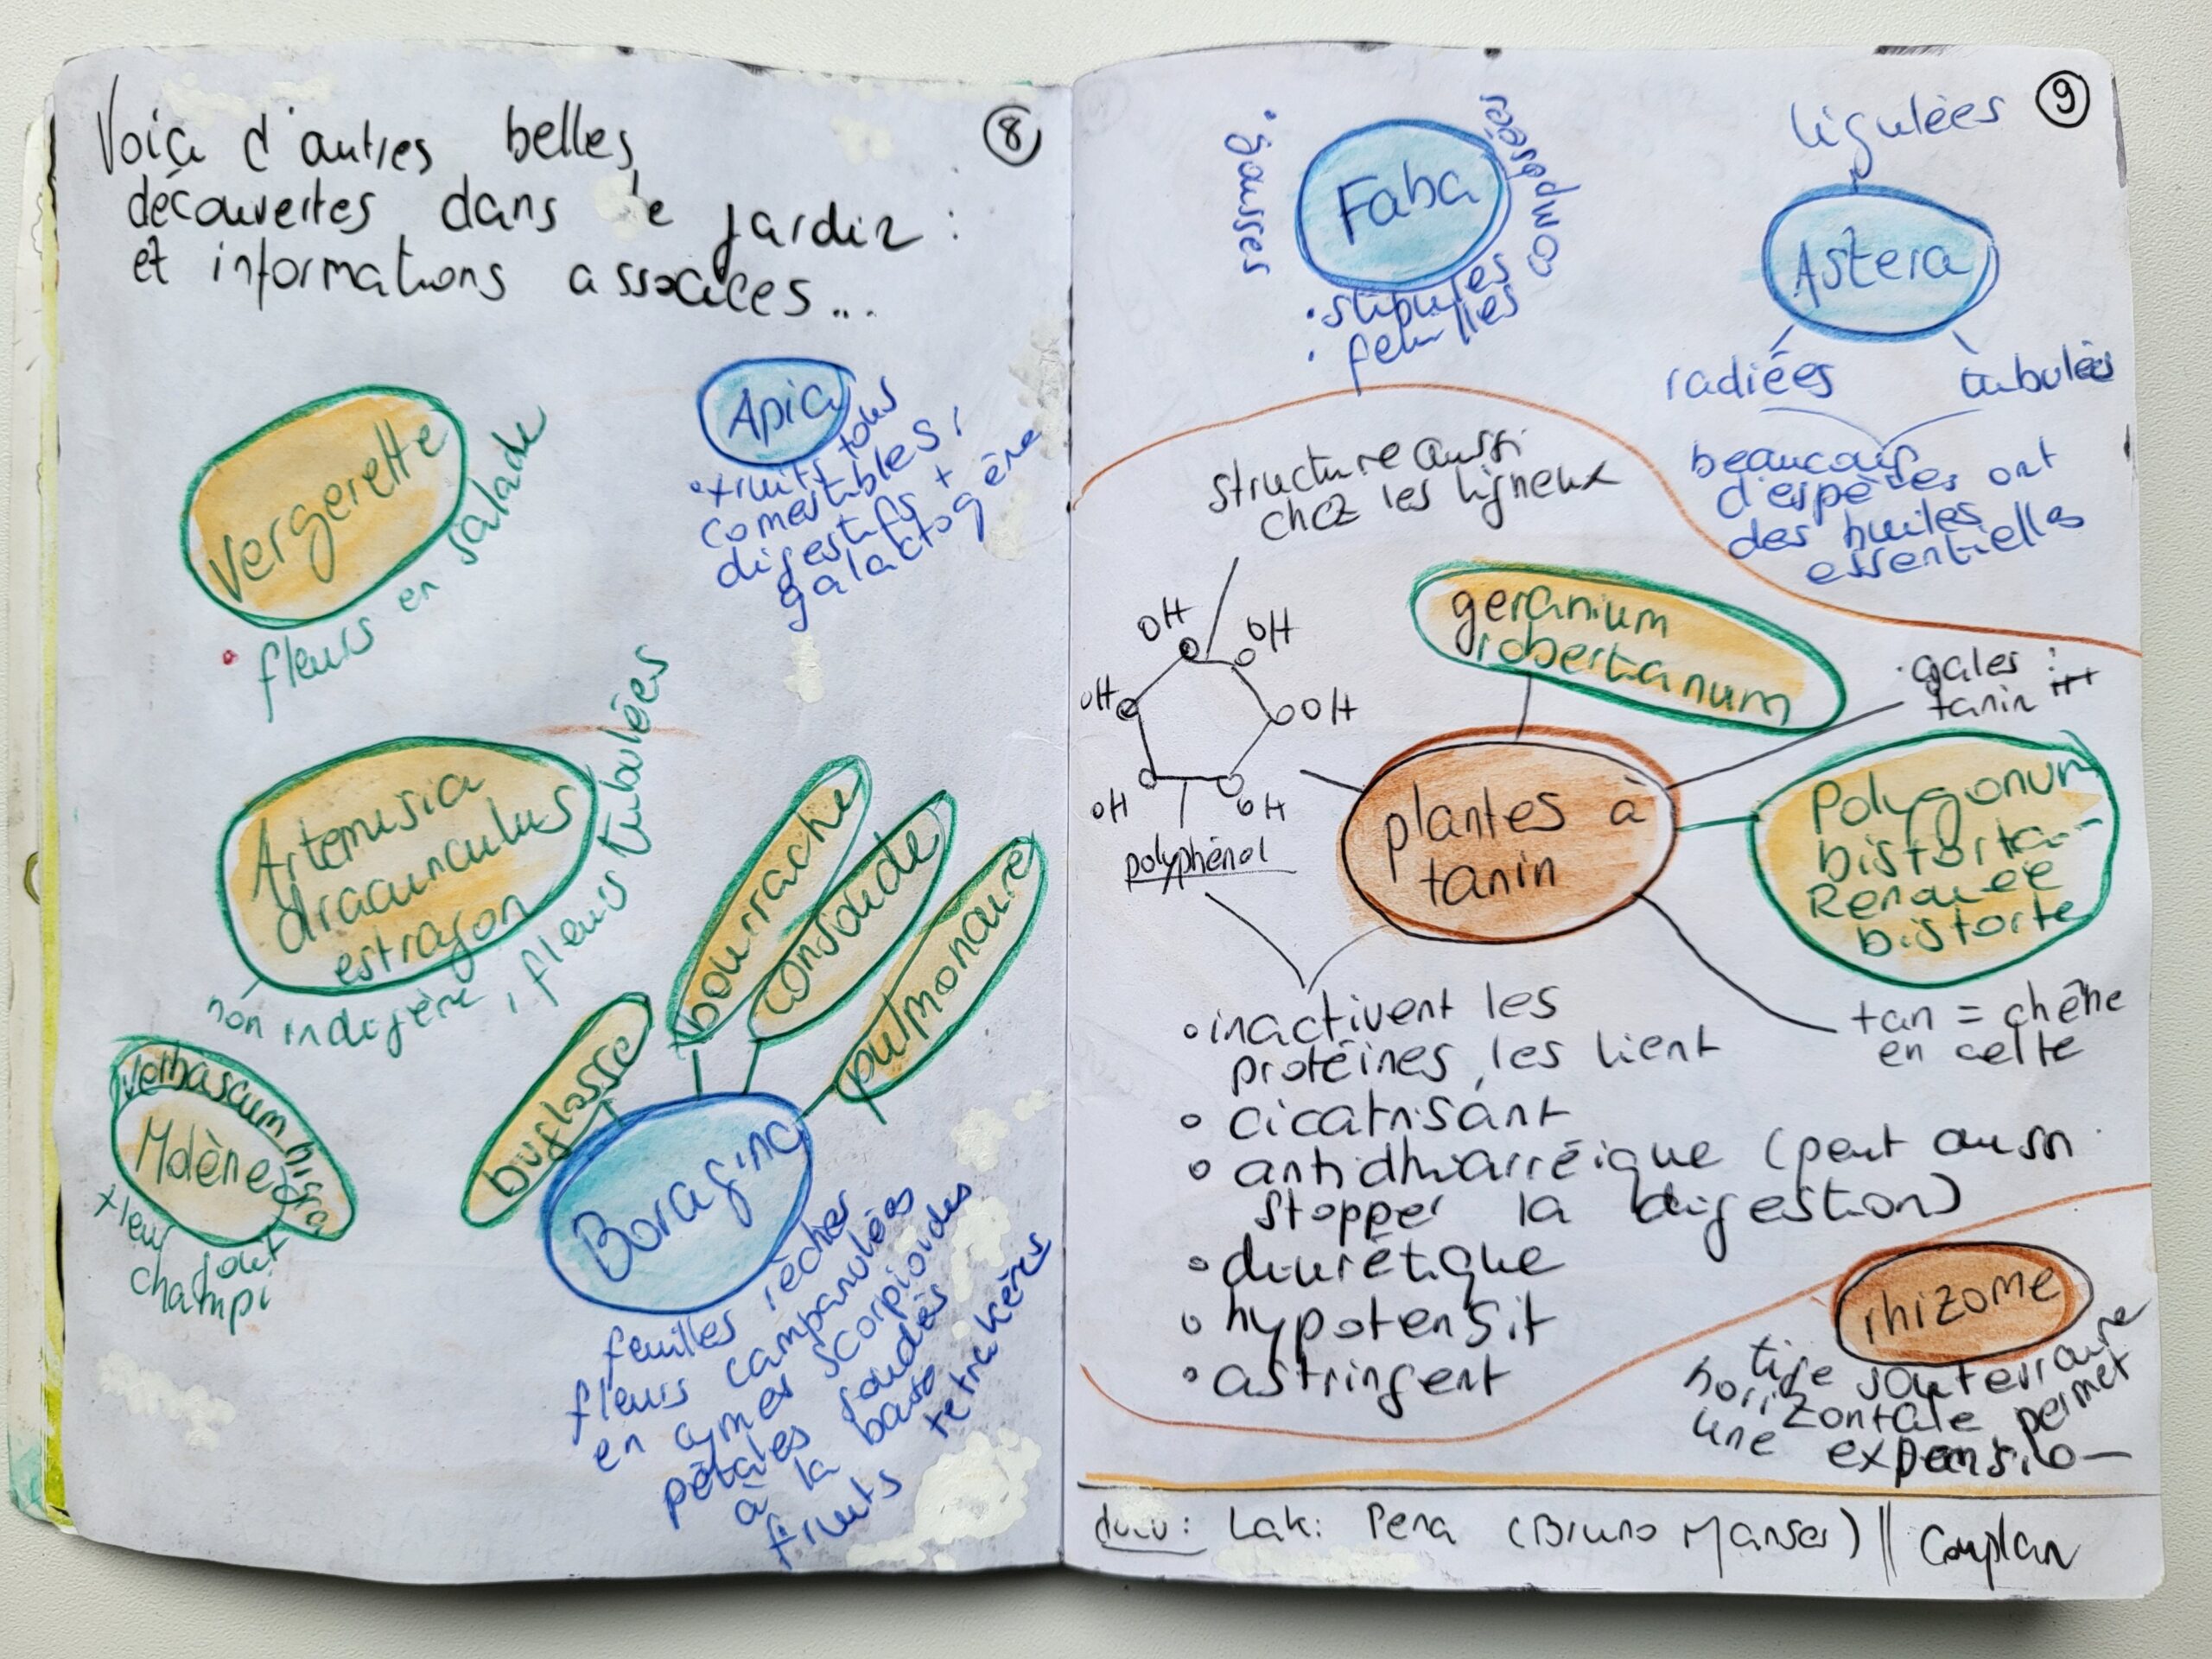 8
Voici d'autres belles
découvertes dans le jardin :
et informations associées...
Vergerette
fleurs en salade
Apia
• fruits tous
comestibles,
digestifs +
galactogène
Artemisia
dracunculus
estragon
non indigène, fleurs tubulées
verbascum nigra
Molène
fleur goût
champi
buglosse
bourrache
consoude
pulmonaire
Boragina
feuilles rèches
fleurs campanulées
en cymes scorpioïdes
pétales soudés
à la base
fruits tetrakènes
9
Faba
• gousses
composées
• stipules
• feuilles
ligulées
Astera
radiées
tubulées
beaucoup
d'espèces ont
des huiles
essentielles
structure aussi
chez les ligneux
OH
OH
OH
OH
OH
OH
polyphénol
geranium
robertanum
plantes à
tanin
• gales :
tanin +++
Polygonum
bistorta
Renouée
bistorte
tan = chêne
en celte
• inactivent les
protéines, les lient
• cicatrisant
• antidhiarréique (peut aussi
stopper la digestion)
• diurétique
• hypotensif
• astringent
rhizome
tige souterraine
horizontale permet
une expansio—
docu : Laki Pena (Bruno Manser) || Couplan